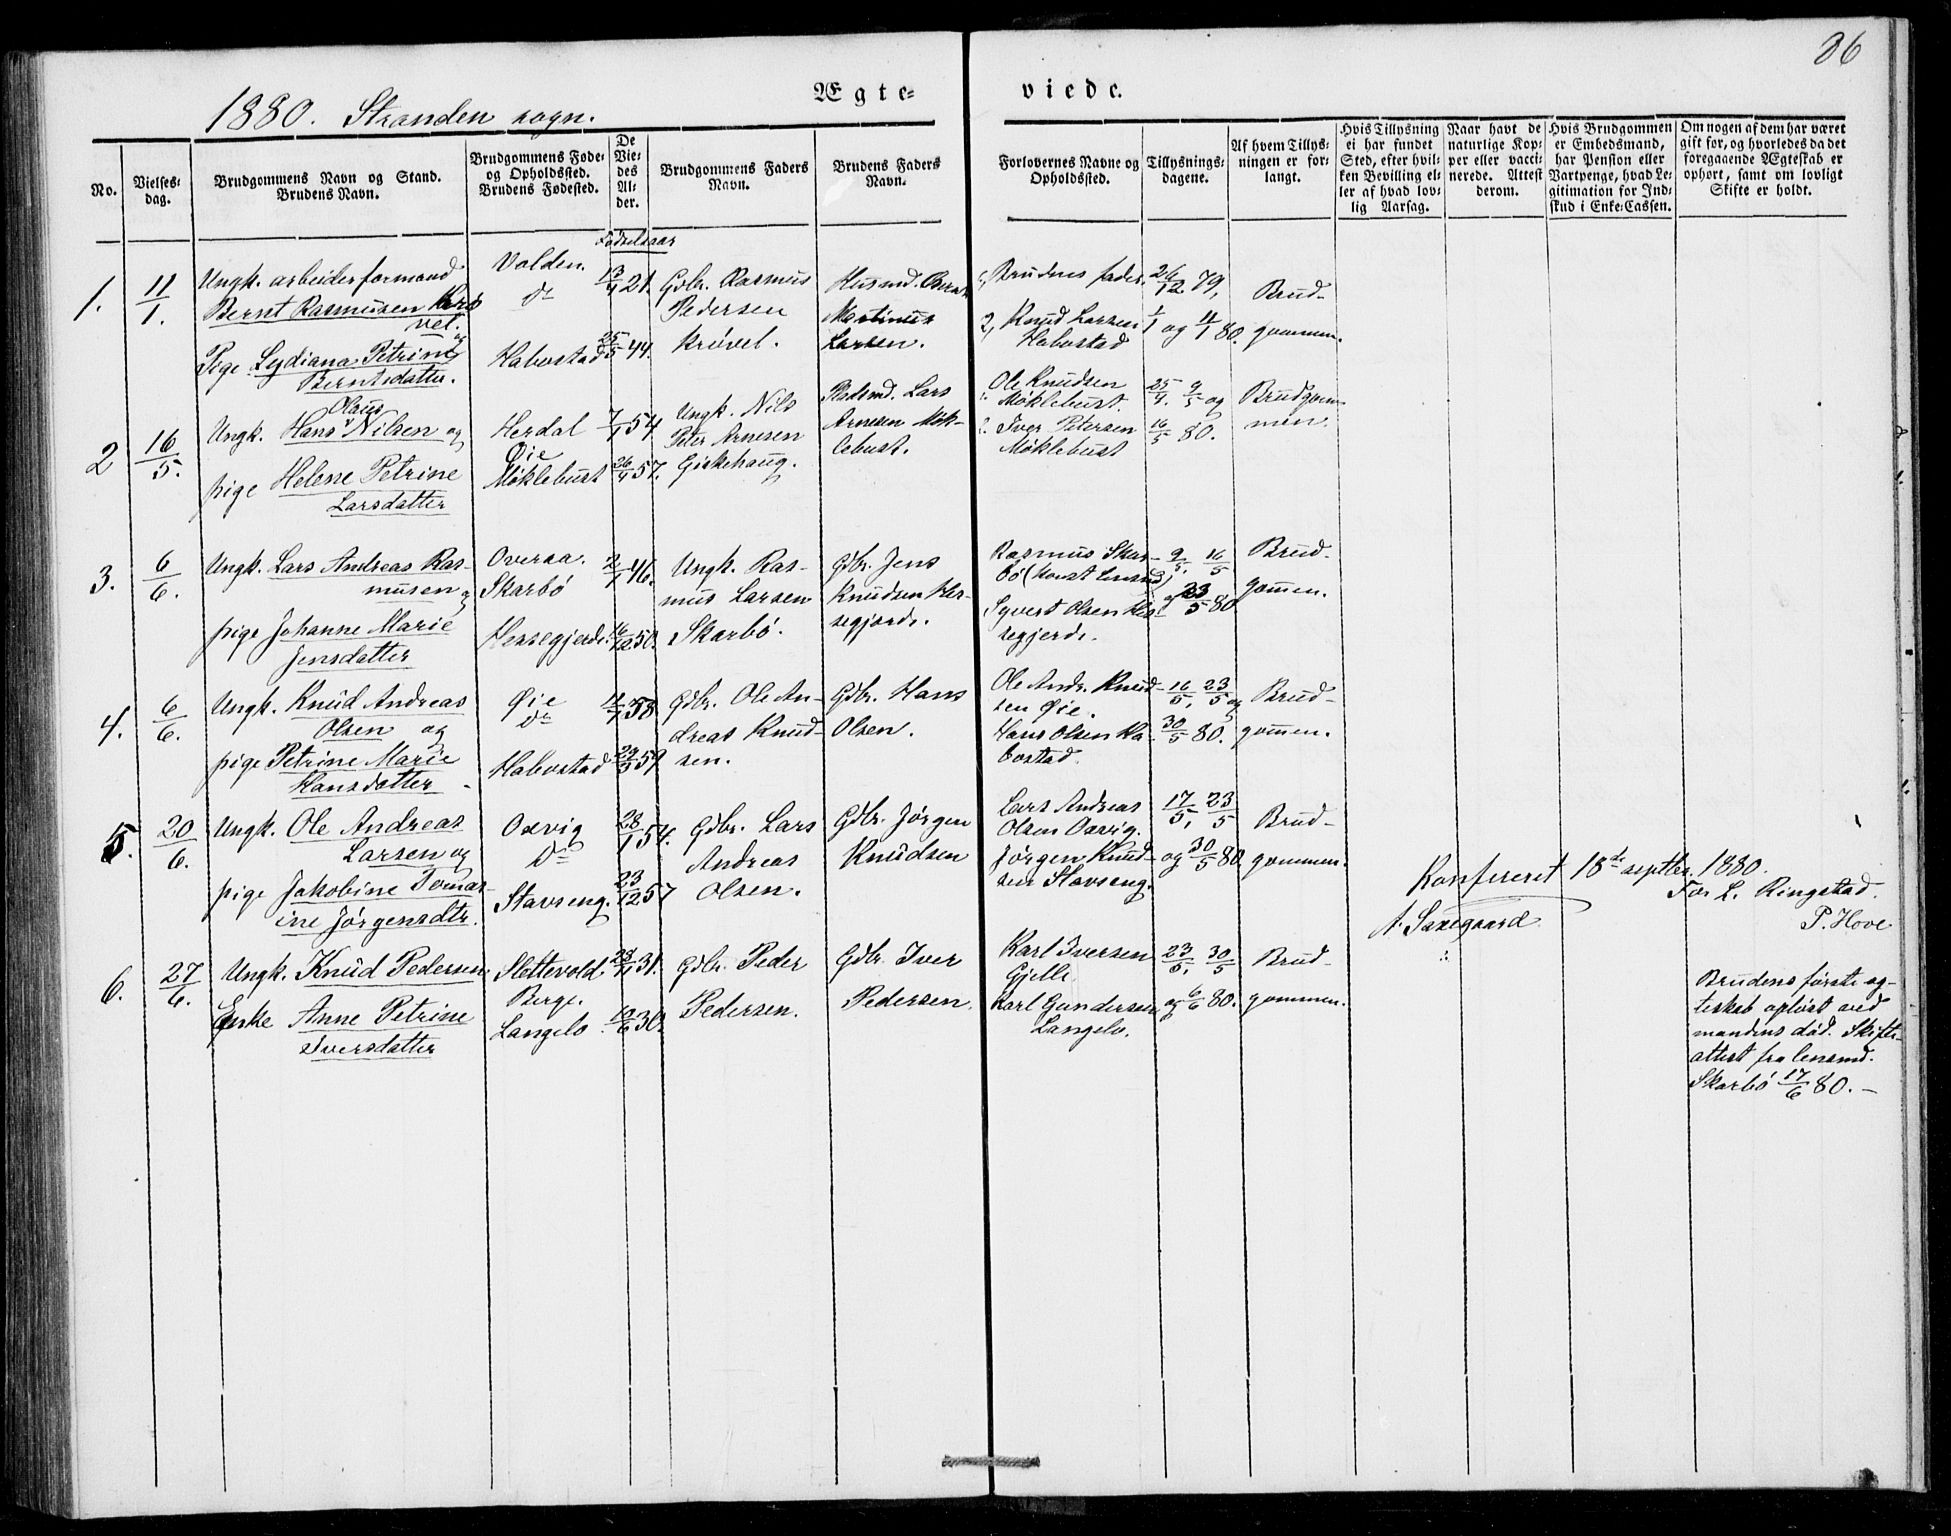 86
1880. Stranden sogn.
Ægte=viede.
No.
Vielses=dag.
Brudgommens Navn og Stand. Brudens Navn.
Brudgommens Føde= og Opholdssted. Brudens Fødested.
De Vie=des Al=der.
Brudgommens Faders Navn.
Brudens Faders Navn.
Forlovernes Navne og Opholdssted.
Tillysnings=dagene.
Af hvem Tillys=ningen er for=langt.
Hvis Tillysning ei har fundet Sted, efter hvil=ken Bevilling el=ler af hvad lov=lig Aarsag.
Naar havt de naturlige Kop=per eller vacci=nerede. Attest derom.
Hvis Brudgommen er Embedsmand, har Pension eller Vartpenge, hvad Le=gitimation for Ind=skud i Enke=Cassen.
Om nogen af dem har været gift for, og hvorledes da det foregaaende Ægteskab er ophørt, samt om lovligt Skifte er holdt.
Fødselsaar
1.
11/1.
Ungk. arbeiderformand
Bernt Rasmusen Krø
vel. og
Pige Lydiana Petrine
Berntsdatter.
Volden.
do
Habostad
21.
25/5 44.
Gdbr. Rasmus
Pedersen
Krøvel.
Husmd. Bernt
Martinus
Larsen.
1, Brudens fader.
2, Knud Larsen
Habostad
26/12 79,
1/1 og 4/1 80.
Brud-
gommen.
2
16/5.
Olaus
Ungk. Hans Nilsen og
pige Helene Petrine
Larsdatter
Herdal
Øie
Møklebust
7/1 54
26/9 57.
Ungk. Nils
Peter Arnesen
Giskehaug.
Pladsmd. Lars
Arnesen Møk-
lebust.
1. Ole Knudsen
Møklebust.
2. Iver Petersen
Møklebust
25/4. 9/5 og
16/5 80.
Brudgom-
men.
3.
6/6.
Ungk. Lars Andreas Ras-
musen og
pige Johanne Marie
Jensdatter
Overaa.
Skarbø
Hessegjerde.
2/1 46.
16/12 50.
Ungk. Ras-
mus Larsen
Skarbø.
Gdbr. Jens
Knudsen Hes-
segjerde.
Rasmus Skar-
bø (konst. Lensmd)
Syvert Olsen Hes-
segjerde.
9/5. 16/5
og 23/5 80
Brud-
gommen.
4.
6/6.
Ungk. Knud Andreas
Olsen og
pige Petrine Marie
Hansdatter
Øie
do
Habostad
58
23/3 59
Gdbr. Ole An-
dreas Knud-
sen.
Gdbr. Hans
Olsen.
Ole Andr. Knud-
sen Øie.
Hans Olsen Ha-
bostad.
16/5, 23/5 og
30/5 80.
Brud-
gommen.
5.
20/6.
Ungk. Ole Andreas
Larsen og
pige Jakobine Tomas-
ine Jørgensdtr.
Oxvig
do
Stavseng.
28/1 54.
23/12 57
Gdbr. Lars
Andreas
Olsen.
Gdbr. Jørgen
Knudsen
Lars Andreas
Olsen Oxvig.
Jørgen Knud-
sen Stavseng.
17/5, 23/5
og 30/5 80
Brud-
gommen.
Konfereret 18de septbr. 1880.
For L. Ringstad.
A. Saxegaard
P. Hove
6.
27/6.
Ungk. Knud Pedersen
Enke Anne Petrine
Iversdatter
Slettevold.
Berge.
Langelo
31.
19/6 30.
Gdbr. Peder
Pedersen.
Gdbr. Iver
Pedersen.
Karl Iversen
Gjelle.
Karl Gundersen
Langelo.
23/5, 30/5
og 6/6 80.
Brud-
gommen.
Brudens første æg-
teskab opløst ved
mandens død. Skifte-
attest fra lensmd.
Skarbø 17/6 80.